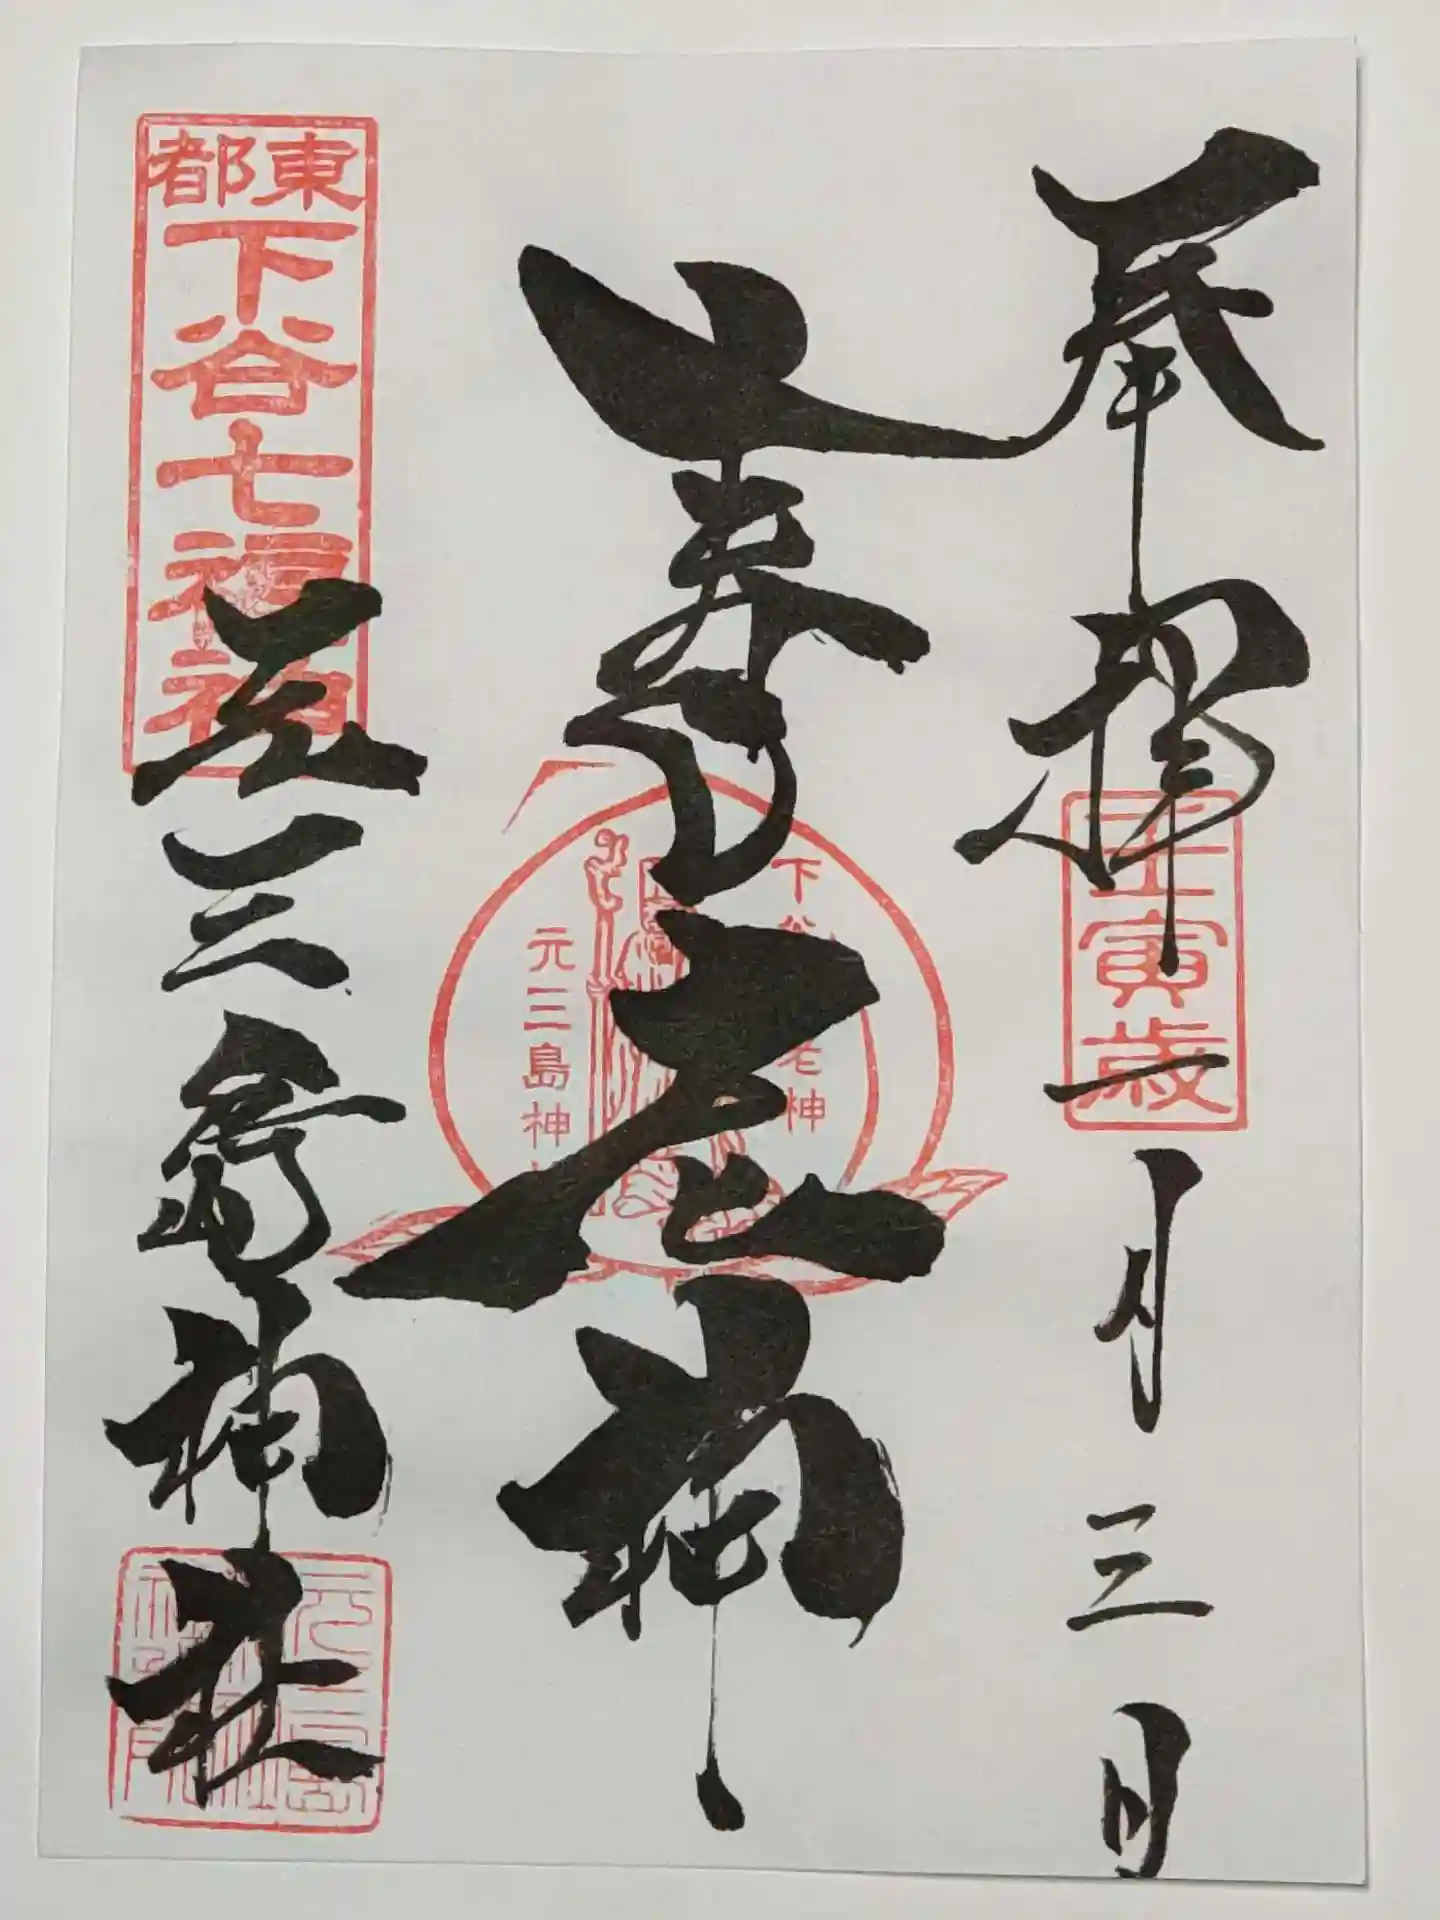 奉拝
壬寅歳
一月三日
寿老神
下谷
老神
元三島神
東都
下谷七福神
元三島神社